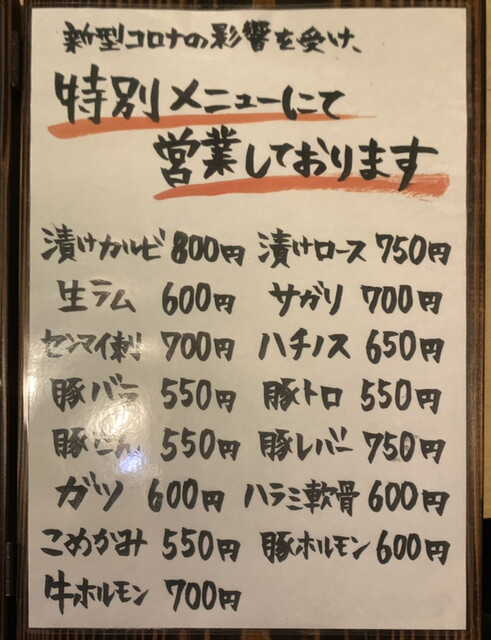 新型コロナの影響を受け、
特別メニューにて
営業しております
漬けカルビ 800円 漬けロース 750円
生ラム 600円 サガリ 700円
センマイ刺 700円 ハチノス 650円
豚バラ 550円 豚トロ 550円
550円 豚レバー 750円
ガツ 600円 ハラミ軟骨 600円
こめかみ 550円 豚ホルモン 600円
牛ホルモン 700円